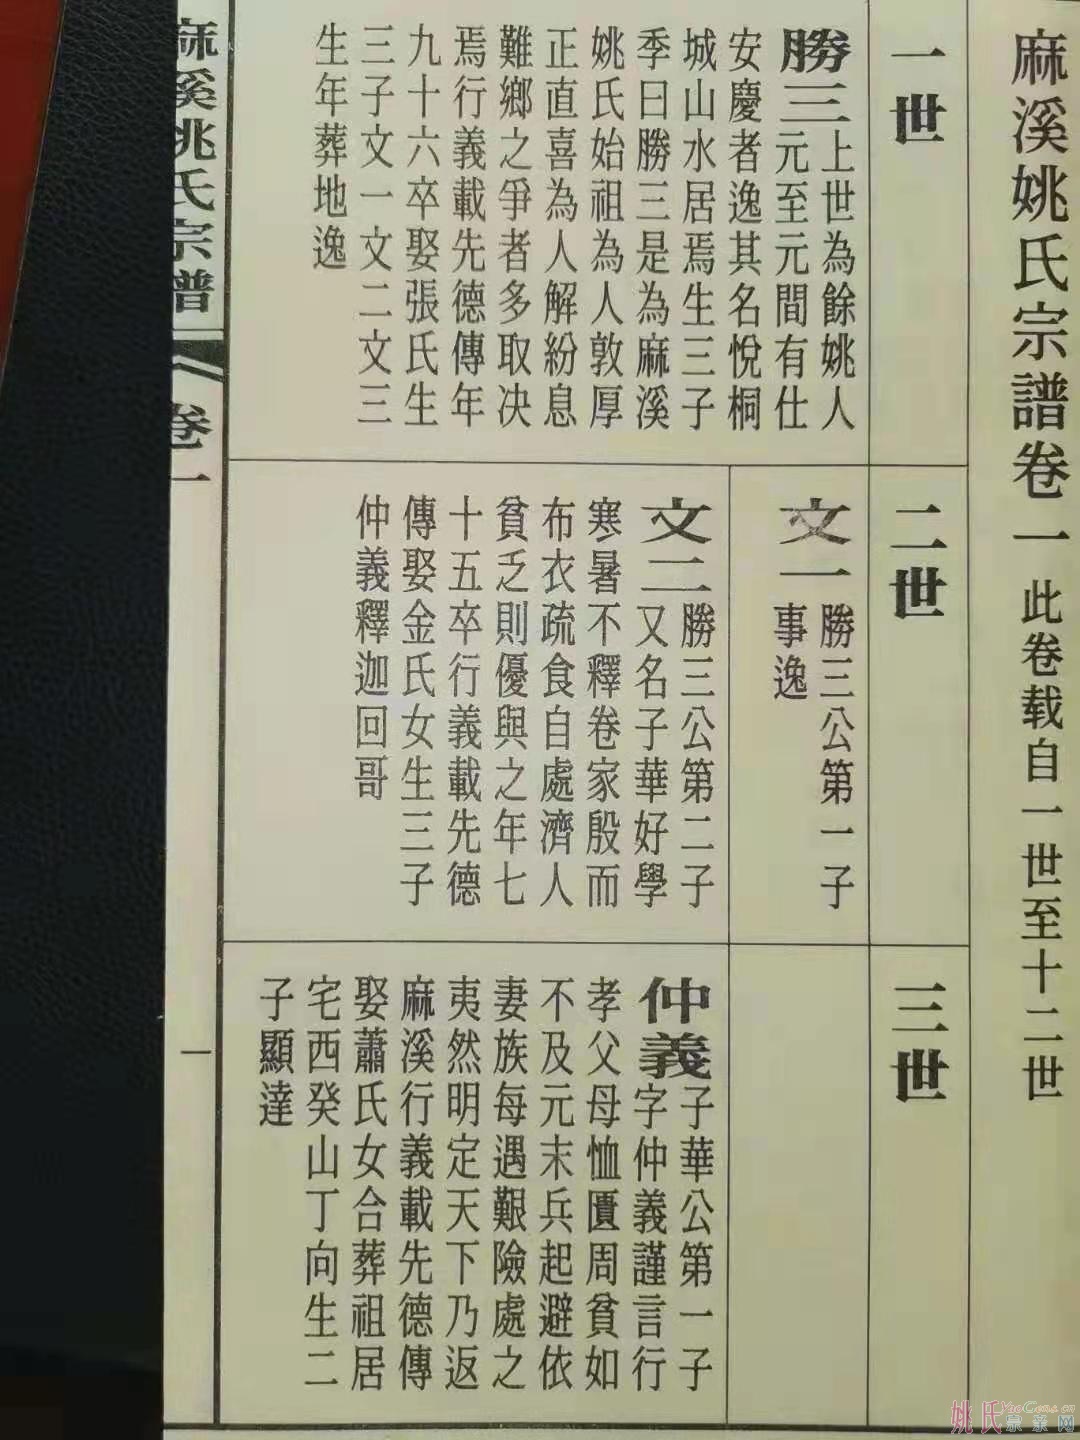 麻溪姚氏宗譜卷一 此卷载自一世至十二世
一世
勝三 上世為餘姚人
元至元間有仕
安慶者逸其名悅桐
城山水居焉生三子
季曰勝三是為麻溪
姚氏始祖為人敦厚
正直喜為人解紛息
難鄉之爭者多取决
焉行義載先德傳年
九十六卒娶張氏生
三子文一文二文三
生年葬地逸
二世
文一 勝三公第一子
事逸
文二 勝三公第二子
又名子華好學
寒暑不釋卷家殷而
布衣疏食自處濟人
貧乏則優與之年七
十五卒行義載先德
傳娶金氏女生三子
仲義釋迦回哥
三世
仲義 子華公第一子
字仲義謹言行
孝父母恤匱周貧如
不及元末兵起避依
妻族每遇艱險處之
夷然明定天下乃返
麻溪行義載先德傳
娶蕭氏女合葬祖居
宅西癸山丁向生二
子顯達
麻溪姚氏宗譜
卷一
一
姚氏宗亲网
YaoGens.cn